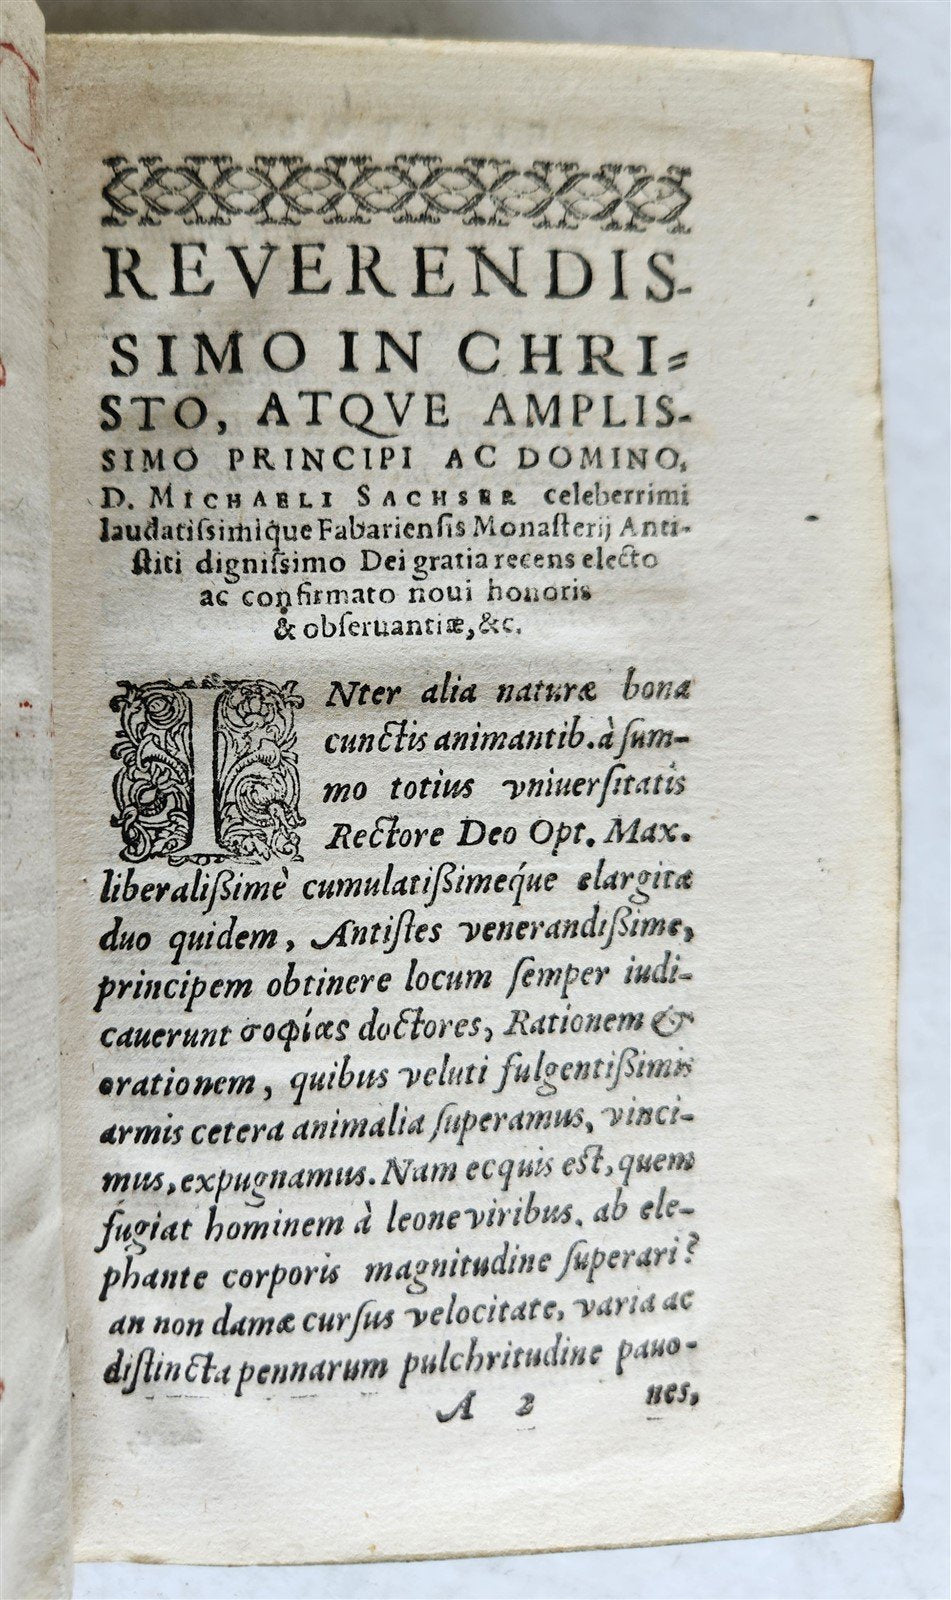 REVERENDIS-
SIMO IN CHRI-
STO, ATQVE AMPLIS-
SIMO PRINCIPI AC DOMINO,
D. MICHAELI SACHSER celeberrimi
laudatiſsimiq́ue Fabarienſis Monaſterij Anti-
ſtiti digniſsimo Dei gratia recens electo
ac confirmato noui honoris
& obſeruantiæ, &c.
INter alia naturæ bona
cunctis animantib. à ſum-
mo totius vniuerſitatis
Rectore Deo Opt. Max.
liberaliſsimè cumulatiſsimeq́ue elargita
duo quidem, Antiſtes venerandiſsime,
principem obtinere locum ſemper iudi-
cauerunt σοφίας doctores, Rationem &
orationem, quibus veluti fulgentiſsimis
armis cetera animalia ſuperamus, vinci-
mus, expugnamus. Nam ecquis eſt, quem
fugiat hominem à leone viribus, ab ele-
phante corporis magnitudine ſuperari?
an non damæ curſus velocitate, varia ac
diſtincta pennarum pulchritudine pauo-
A 2 nes,